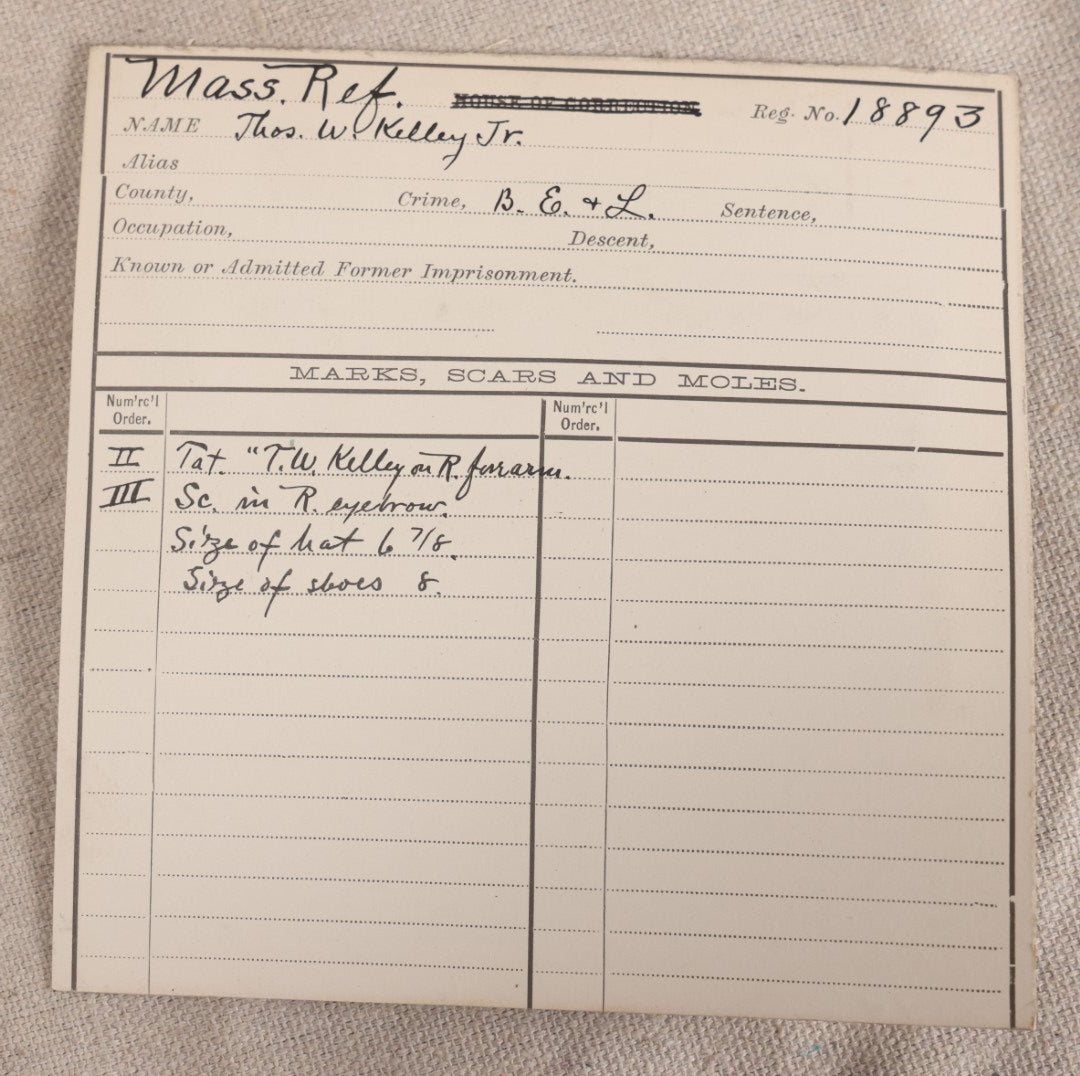 Mass. Ref. HOUSE OF CORRECTION Reg. No. 18893
NAME Thos. W. Kelley Jr.
Alias
County, Crime, B. E. & L. Sentence,
Occupation, Descent,
Known or Admitted Former Imprisonment.
MARKS, SCARS AND MOLES.
Num'rc'l Order. Num'rc'l Order.
II Tat. "T.W. Kelley on R. forearm.
III Sc. in R. eyebrow.
Size of hat 6 7/8.
Size of shoes 8.